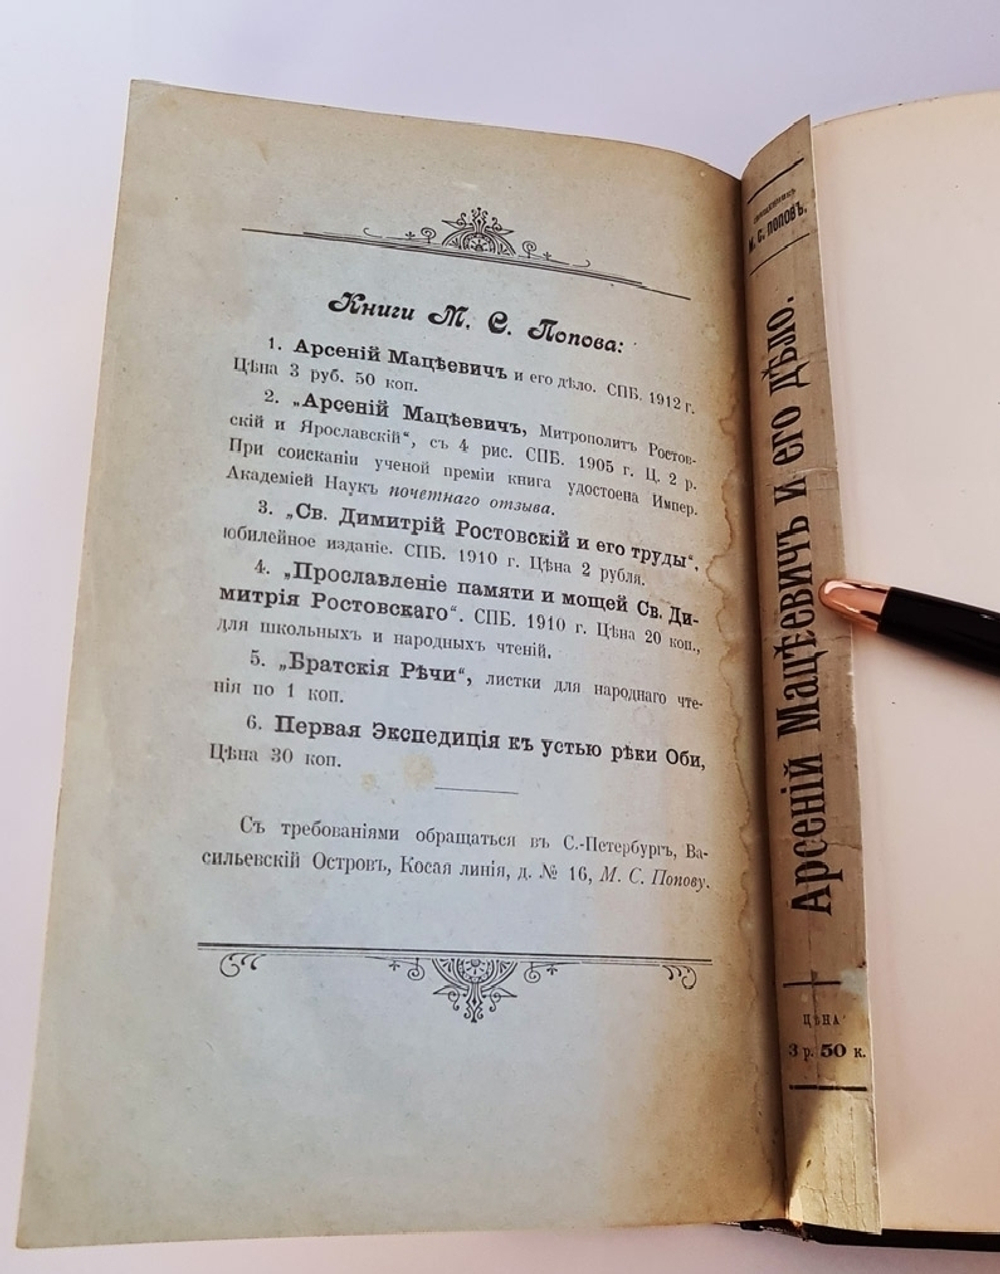 Книги М. С. Попова:
1. Арсеній Мацѣевичъ и его дѣло. СПБ. 1912 г.
Цѣна 3 руб. 50 коп.
2. „Арсеній Мацѣевичъ, Митрополитъ Ростов-
скій и Ярославскій“, съ 4 рис. СПБ. 1905 г. Ц. 2 р.
При соисканіи ученой преміи книга удостоена Импер.
Академіей Наукъ почетнаго отзыва.
3. „Св. Димитрій Ростовскій и его труды“,
юбилейное изданіе. СПБ. 1910 г. Цѣна 2 рубля.
4. „Прославленіе памяти и мощей Св. Ди-
митрія Ростовскаго“. СПБ. 1910 г. Цѣна 20 коп.,
для школьныхъ и народныхъ чтеній.
5. „Братскія Рѣчи“, листки для народнаго чте-
нія по 1 коп.
6. Первая Экспедиція къ устью рѣки Оби,
Цѣна 30 коп.
Съ требованіями обращаться въ С.-Петербургъ, Ва-
сильевскій Островъ, Косая линія, д. № 16, М. С. Попову.
Священникъ
М. С. ПОПОВЪ.
Арсеній Мацѣевичъ и его дѣло.
ЦѢНА
3 р. 50 к.